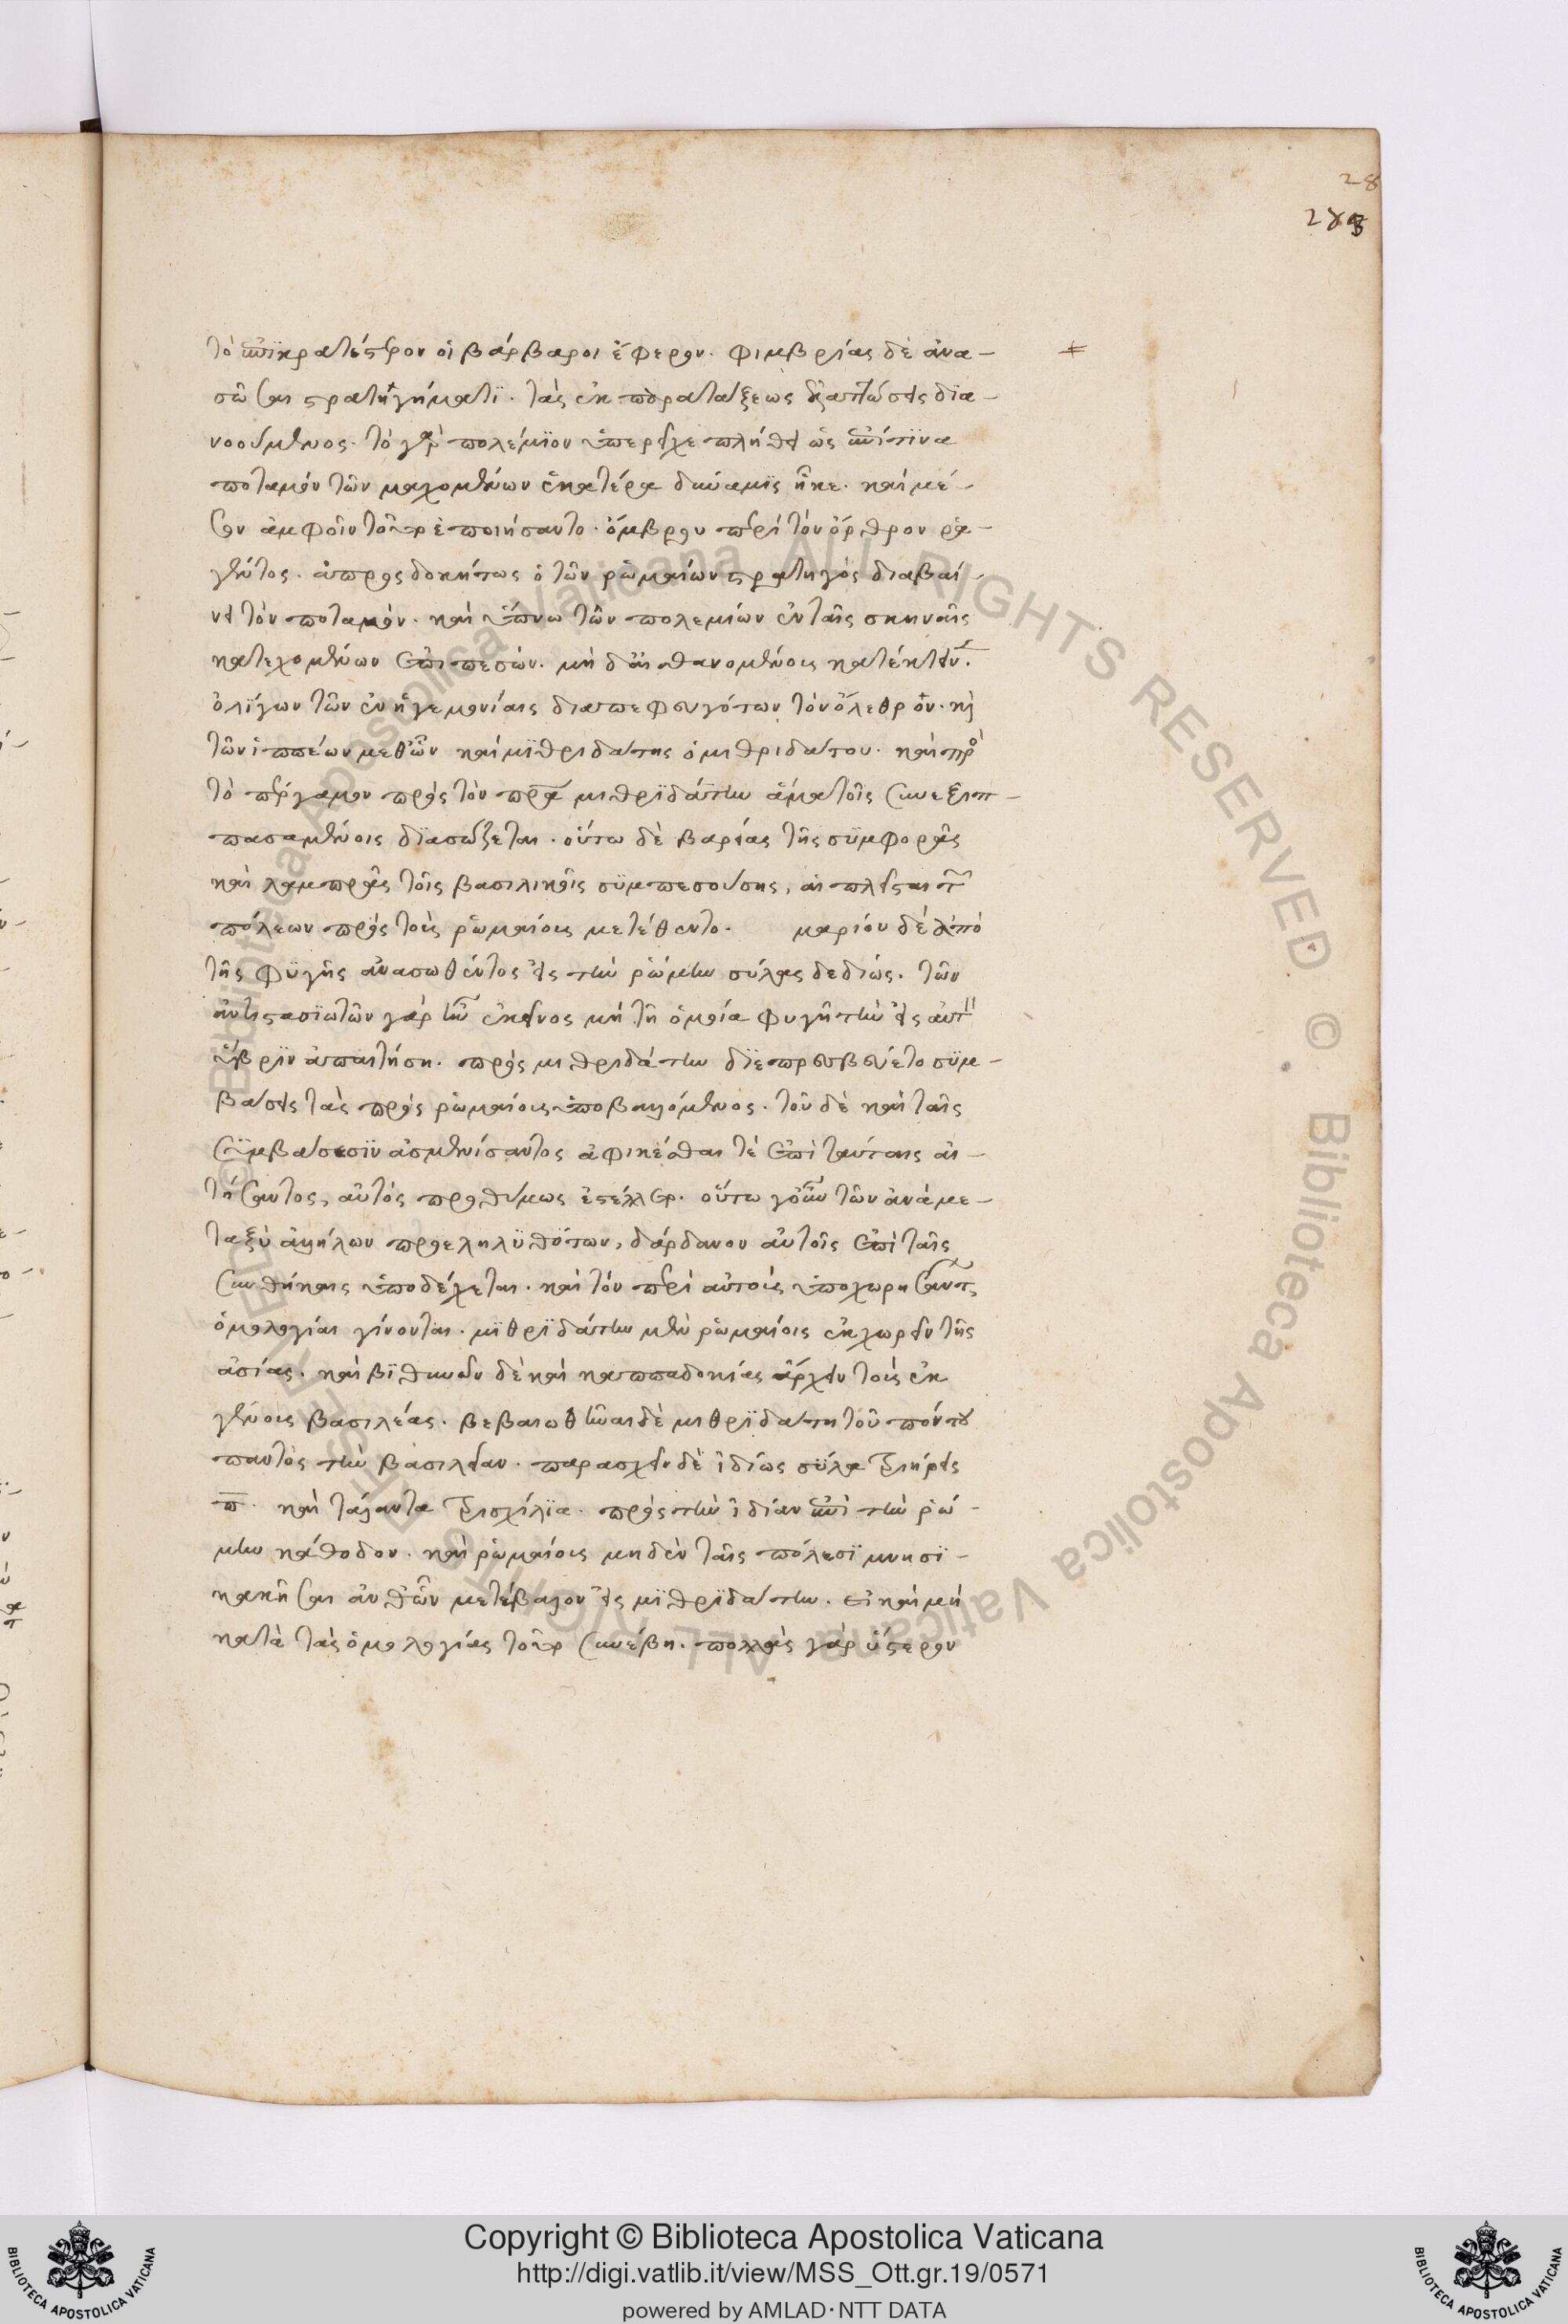 28
288
τὸ ἐπικρατέστερον οἱ βάρβαροι ἔφερον. φιμβρίας δὲ ἀνα-
σῶσαι στρατηγήματϊ. τὰς ἐκ παρατάξεως ἐλαττώσεις δϊα-
νοούμενος. τὸ γὰρ πολέμϊον ὑπερεῖχε πλήθει ὡς ἐπίτϊνα
ποταμὸν τῶν μαχομένων ἑκατέρα δύναμϊς ἧκε. καὶ μέ-
σον ἀμφοῖν τοῦτον ἐποιήσαντο. ὄμβρου περὶ τὸν ὄρθρον ῥα-
γέντος. ἀπροςδοκήτως ὁ τῶν ῥωμαίων στρατηγὸς διαβαί-
νει τὸν ποταμόν. καὶ ὕπνω τῶν πολεμίων ἐν ταῖς σκηναῖς
κατεχομένων ἐπιπεσὼν. μὴ δ' αἰσθανομένους κατέκτεινεν.
ὀλίγων τῶν ἐν ἡγεμονίαις διαπεφευγότων τὸν ὄλεθρον. καὶ
τῶν ἱππέων μεθ' ὧν καὶ μϊθριδάτης ὁ μιθριδάτου. καὶ πρὸς
τὸ πέργαμον πρὸς τὸν πρα μιθρϊδάτην ἅμα τοῖς συνεξιπ-
πασαμένοις δϊασώζεται. οὕτω δὲ βαρείας τῆς συμφορᾶς
καὶ λαμπρᾶς τοῖς βασιλικοῖς συμπεσούσης, αἱ πλεῖσται τῶν
πόλεων πρὸς τοὺς ῥωμαίους μετέθεντο. μαρίου δὲ ἀπὸ
τῆς φυγῆς ἀνασωθέντος εἰς τὴν ῥώμην σύλας δεδιὼς. τῶν
ἀντιστασϊωτῶν γὰρ ἦν ἐκεῖνος μὴ τῆ ὁμοία φυγῆ τὴν εἰς αὐτὸν
ὕβρϊν ἀπαιτήση. πρὸς μιθριδάτην δϊεπρεσβεύετο συμ-
βάσεις τὰς πρὸς ῥωμαίους ὑποβαλλόμενος. τοῦ δὲ καὶ ταῖς
συμβάσεσϊν ἀσμενίσαντος ἀφικέσθαι τὲ ἐπὶ ταύταις αἰ-
τήσαντος, αὐτὸς προθύμως ἐστέλλετο. οὕτω γοῦν τῶν ἀνάμε-
ταξὺ ἀλλήλων προεληλυθότων, δάρδανον αὐτοὺς ἐπὶ ταῖς
συνθήκαις ὑποδέχεται. καὶ τὸν περὶ αὐτοὺς ὑποχωρησάντων,
ὁμολογίαι γίνονται. μϊθρϊδάτην μὲν ῥωμαίοις ἐκχωρεῖν τῆς
ἀσίας. καὶ βϊθυνῶν δὲ καὶ καππαδοκίας ἄρχειν τοὺς ἐκ
γένους βασιλέας. βεβαιωθῆναι δὲ μιθρϊδάτη τοῦ πόντου
παντὸς τὴν βασιλείαν. παρασχεῖν δὲ ἰδίως σύλα τριήρεις
π. καὶ τάλαντα τρισχίλϊα. πρὸς τὴν ἰδίαν ἐπὶ τὴν ῥώ-
μην κάθοδον. καὶ ῥωμαίους μηδὲν ταῖς πόλεσϊ μνησϊ-
κακῆσαι ἀνθ' ὧν μετέβαλον εἰς μϊθρϊδάτην. εἰ καὶ μὴ
κατὰ τὰς ὁμολογίας τοῦτο συνέβη. πολλὰς γὰρ ὕστερον
Copyright © Biblioteca Apostolica Vaticana
http://digi.vatlib.it/view/MSS_Ott.gr.19/0571
powered by AMLAD·NTT DATA